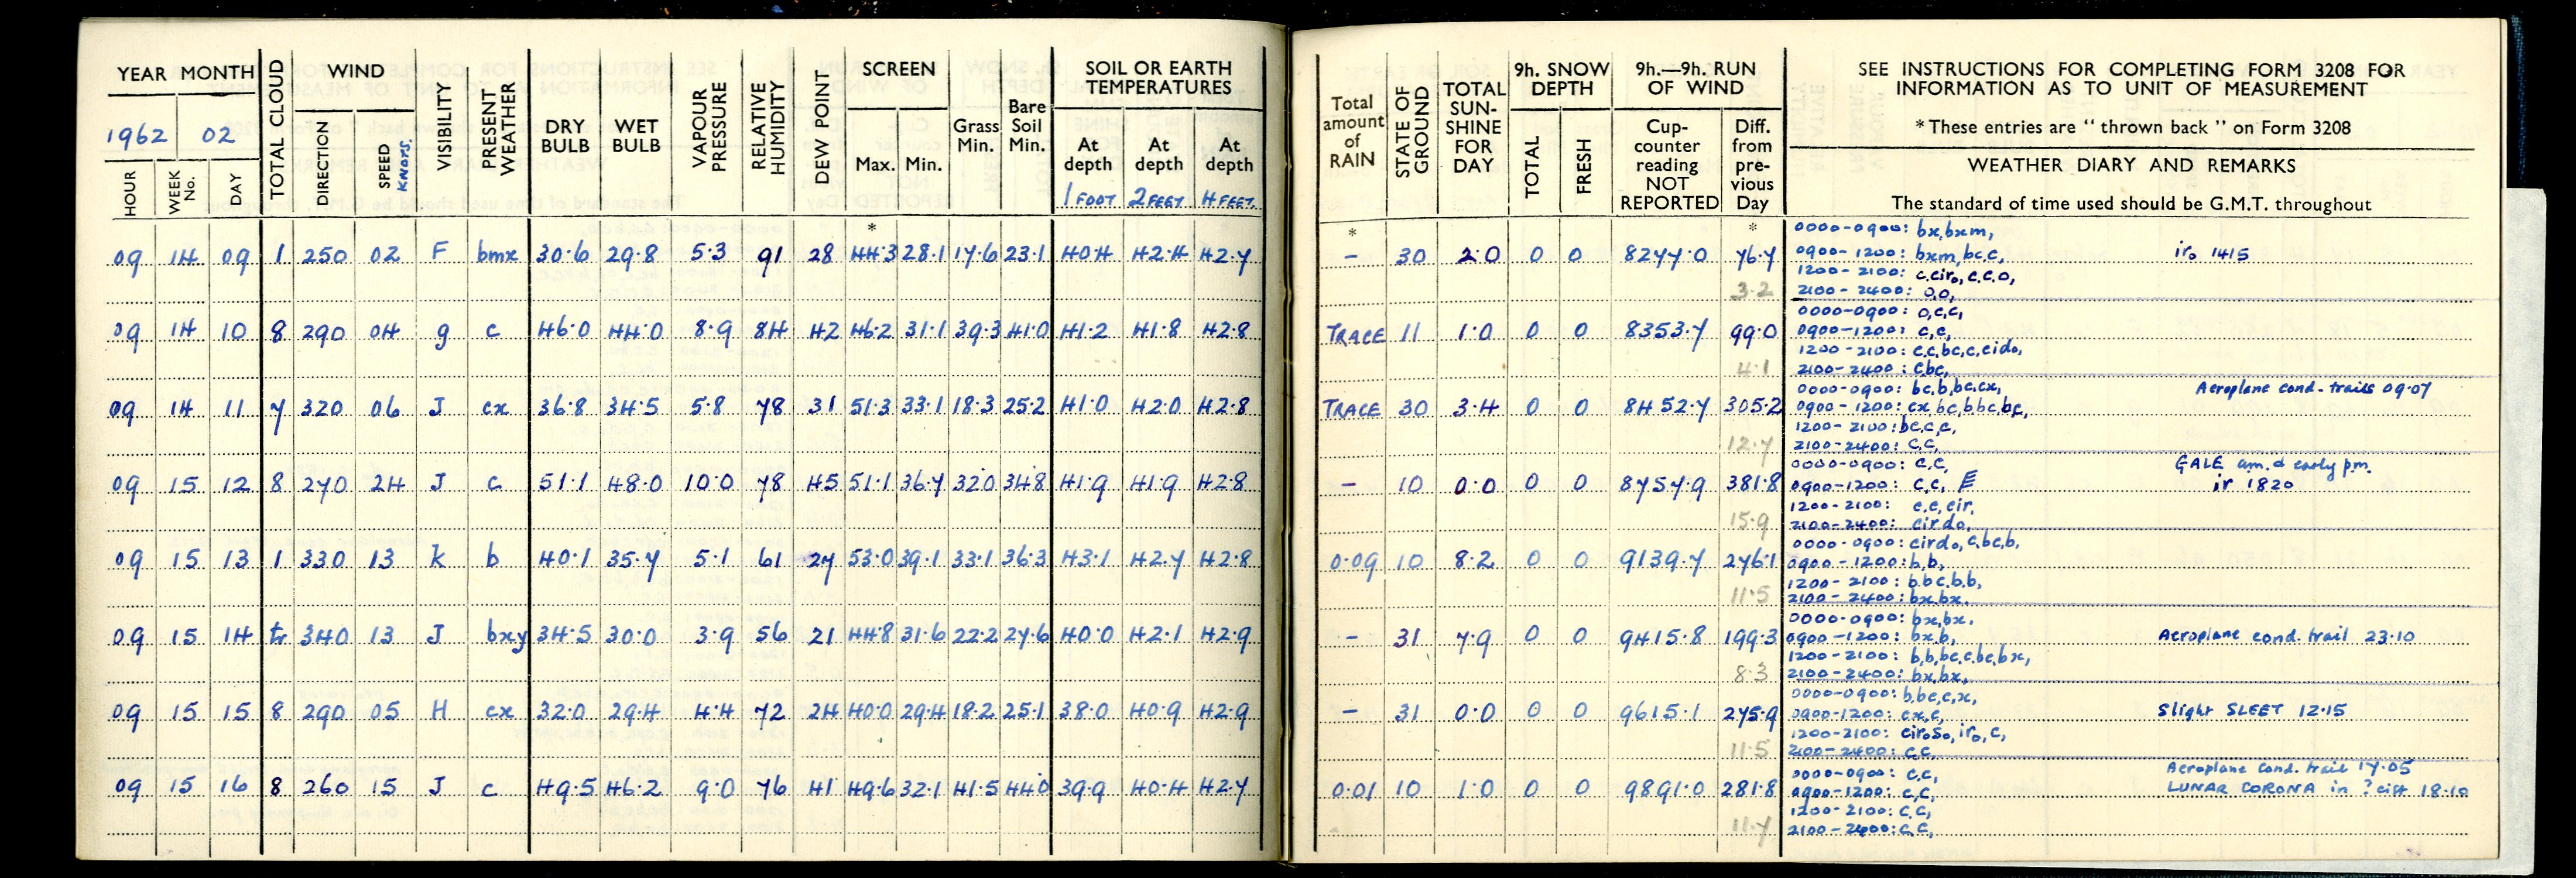 YEAR MONTH
1962 02
HOUR
WEEK No.
DAY
TOTAL CLOUD
WIND
DIRECTION
SPEED KNOTS.
VISIBILITY
PRESENT WEATHER
DRY BULB
WET BULB
VAPOUR PRESSURE
RELATIVE HUMIDITY
DEW POINT
SCREEN
Max. Min.
Grass Min.
Bare Soil Min.
SOIL OR EARTH
TEMPERATURES
At depth At depth At depth
1 FOOT 2 FEET 4 FEET
Total amount of RAIN
STATE OF GROUND
TOTAL SUN-SHINE FOR DAY
9h. SNOW DEPTH
TOTAL
FRESH
9h.—9h. RUN OF WIND
Cup-counter reading NOT REPORTED
Diff. from pre-vious Day
SEE INSTRUCTIONS FOR COMPLETING FORM 3208 FOR
INFORMATION AS TO UNIT OF MEASUREMENT
* These entries are “ thrown back ” on Form 3208
WEATHER DIARY AND REMARKS
The standard of time used should be G.M.T. throughout
* * *
09 14 09 1 250 02 F bmx 30·6 29·8 5·3 91 28 44·3 28·1 17·6 23·1 40·4 42·4 42·7 – 30 2·0 0 0 8277·0 76·7
3·2
0000-0900: bx,bxm,
0900-1200: bxm,bc,c, ir₀ 1415
1200-2100: c,cir₀,c,c,o,
2100-2400: o,o,
09 14 10 8 290 04 g c 46·0 44·0 8·9 84 42 46·2 31·1 39·3 41·0 41·2 41·8 42·8 TRACE 11 1·0 0 0 8353·7 99·0
4·1
0000-0900: o,c,c,
0900-1200: c,c,
1200-2100: c,c,bc,c,cid₀,
2100-2400: c,bc,
09 14 11 7 320 06 J cx 36·8 34·5 5·8 78 31 51·3 33·1 18·3 25·2 41·0 42·0 42·8 TRACE 30 3·4 0 0 8452·7 305·2
12·7
0000-0900: bc,b,bc,cx, Aeroplane cond-trails 09·07
0900-1200: cx,bc,bbc,bc,
1200-2100: bc,c,c,
2100-2400: c,c,
09 15 12 8 270 24 J c 51·1 48·0 10·0 78 45 51·1 36·7 32·0 34·8 41·9 41·9 42·8 – 10 0·0 0 0 8757·9 381·8
15·9
0000-0900: c,c, GALE am. & early pm.
0900-1200: c,c, ir 1820
1200-2100: c,c,cir,
2100-2400: cird₀,
09 15 13 1 330 13 k b 40·1 35·7 5·1 61 27 53·0 39·1 33·1 36·3 43·1 42·7 42·8 0·09 10 8·2 0 0 9139·7 276·1
11·5
0000-0900: cird₀,c,bc,b,
0900-1200: b,b,
1200-2100: b,bc,b,b,
2100-2400: bx,bx.
09 15 14 tr 340 13 J bxy 34·5 30·0 3·9 56 21 44·8 31·6 22·2 27·6 40·0 42·1 42·9 – 31 7·9 0 0 9415·8 199·3
8·3
0000-0900: bx,bx,
0900-1200: bx,b, Aeroplane cond. trail 23·10
1200-2100: b,b,bc,c,bc,bx,
2100-2400: bx,bx,
09 15 15 8 290 05 H cx 32·0 29·4 4·4 72 24 40·0 29·4 18·2 25·1 38·0 40·9 42·9 – 31 0·0 0 0 9615·1 275·9
11·5
0000-0900: b,bc,c,x,
0900-1200: cx,c, Slight SLEET 12·15
1200-2100: cir₀s₀,ir₀,c,
2100-2400: c,c,
09 15 16 8 260 15 J c 49·5 46·2 9·0 76 41 49·6 32·1 41·5 44·0 39·9 40·4 42·7 0·01 10 1·0 0 0 9891·0 281·8
11·7
0000-0900: c,c, Aeroplane Cond. trail 17·05
0900-1200: c,c, LUNAR CORONA in ? cist 18·10
1200-2100: c,c,
2100-2400: c,c,